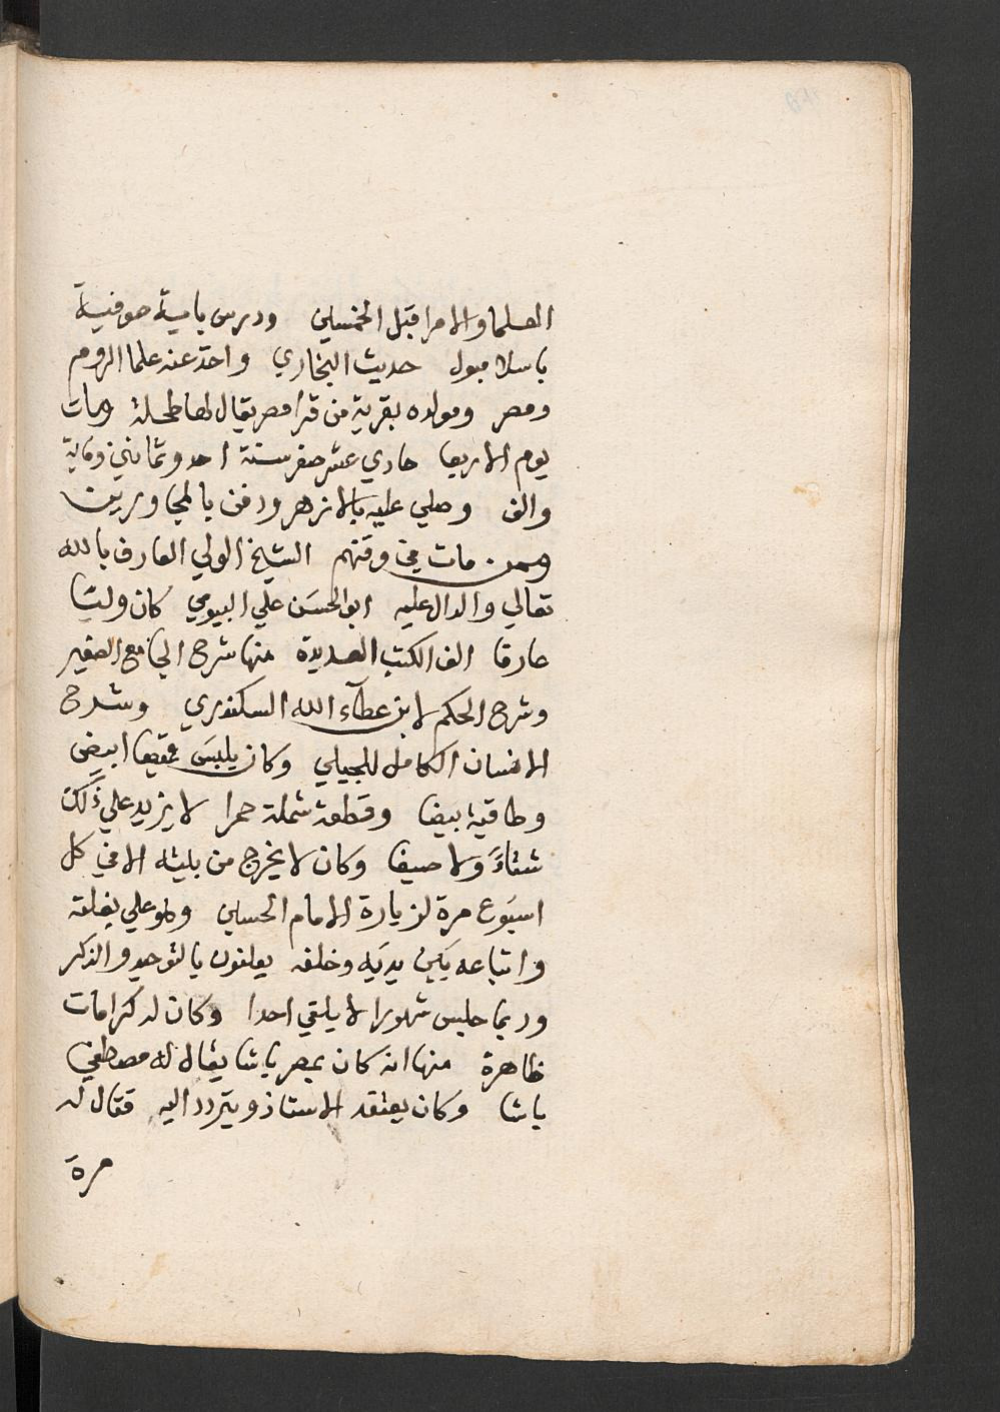 العلما والامرا قبل الخمسين ودرس باية صوفية
باسلامبول حديث البخاري واخذ عنه علما الروم
ومصر ومولده بقرية من قرا مصر يقال لها طحلة ومات
يوم الاربعا حادي عشر صفر سنة احد وثمانين وماية
والف وصلي عليه بالازهر ودفن بالمجاورين
وممن مات في وقتهم الشيخ الولي العارف بالله
تعالي والدال عليه ابو الحسَن علي البيومي كان وليًا
عارفا الف الكتب العديدة منها شرح الجامع الصغير
وشرح الحكم لابن عطآء الله السكندري وشرح
الانسان الكامل للجيلي وكان يلبسَ قميصا ابيض
وطاقية بيضا وقطعة شملة حمرا لا يزيد علي ذلك
شتاءً ولا صيفا وكان لا يخرج من بيته الا في كل
اسبوع مرة لزيارة الامام الحسين وهو علي بغلته
واتباعه بَين يديَه وخلفه يعلنون بالتوحيد والذكر
وربما جلس شهورا لا يلقي احدا وكان له كرامات
ظاهرة منها انه كان بمصر باشا يقال له مصطفي
باشا وكان يعتقد الاستاذ ويتردد اليه فقال له
مرة